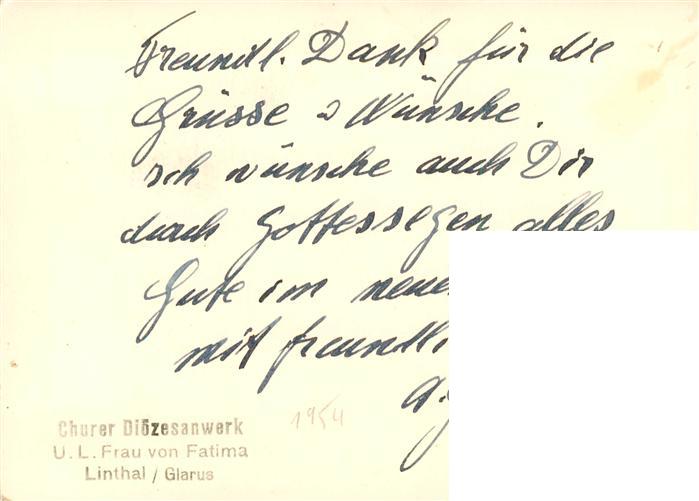 Freundl. Dank für die
Grüsse & Wünsche.
Ich wünsche auch Dir
durch Gottessegen alles
Gute im
mit
Churer Diözesanwerk
U. L. Frau von Fatima
Linthal / Glarus
1954